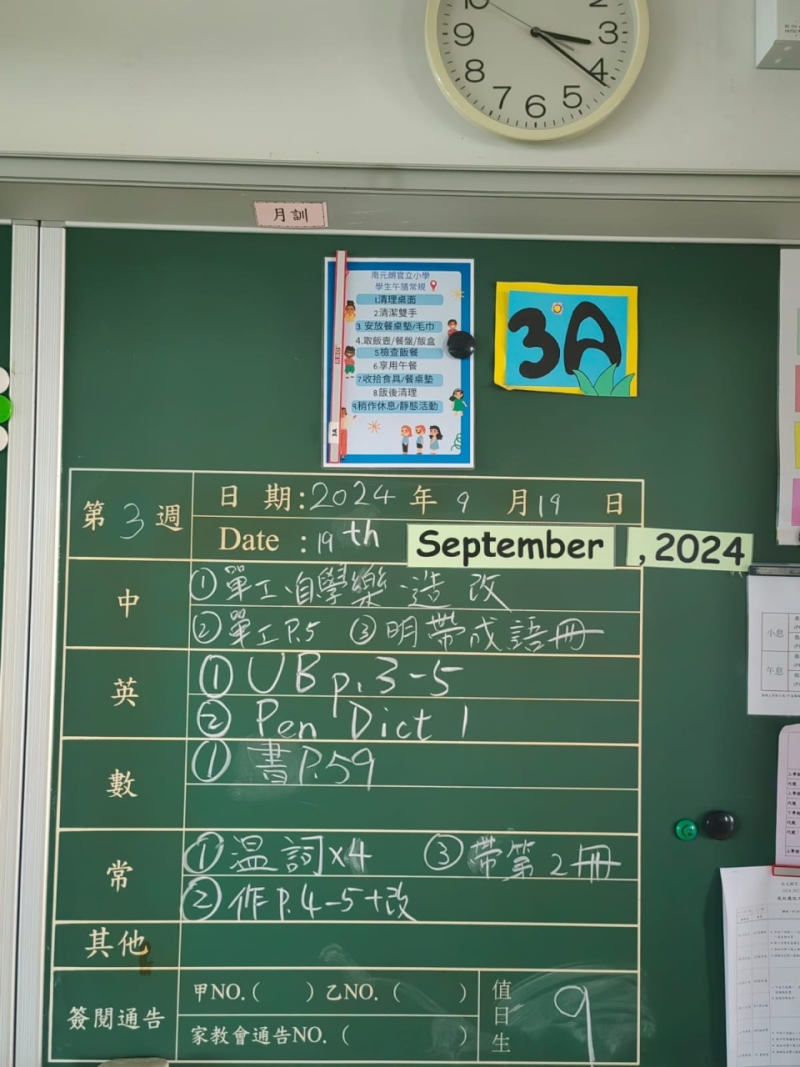 10
2
9
3
8
4
7
6
5
月訓
南元朗官立小學
學生午膳常規
1.清理桌面
2.清潔雙手
3.安放餐桌墊/毛巾
4.取飯壺/餐盤/飯盒
5.檢查飯餐
6.享用午餐
7.收拾食具/餐桌墊
8.飯後清理
9.稍作休息/靜態活動
3A
第3週
日期:2024年9月19日
Date:19th September,2024
中
①單工自學樂 造 改
②單工P.5 ③明帶成語冊
英
①UB p.3-5
②Pen Dict 1
數
①書P.59
常
①温詞x4 ③帶第2冊
②作P.4-5+改
其他
簽閱通告
甲NO.( )乙NO.( )
家教會通告NO.( )
值日生
9
小息
午息